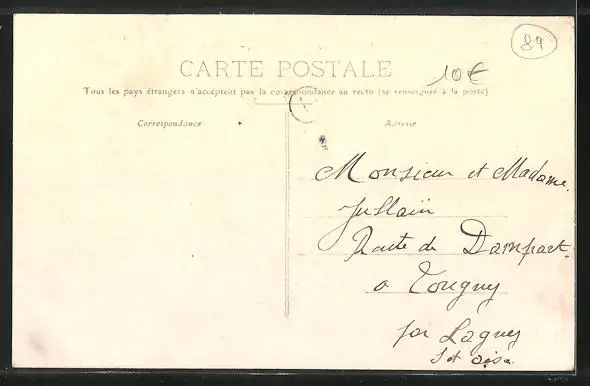 89
CARTE POSTALE
10€
Tous les pays étrangers n'acceptent pas la correspondance au recto (se renseigner à la poste)
Correspondance
Adresse
Monsieur et Madame
Route de Dampart
a
par Lagny